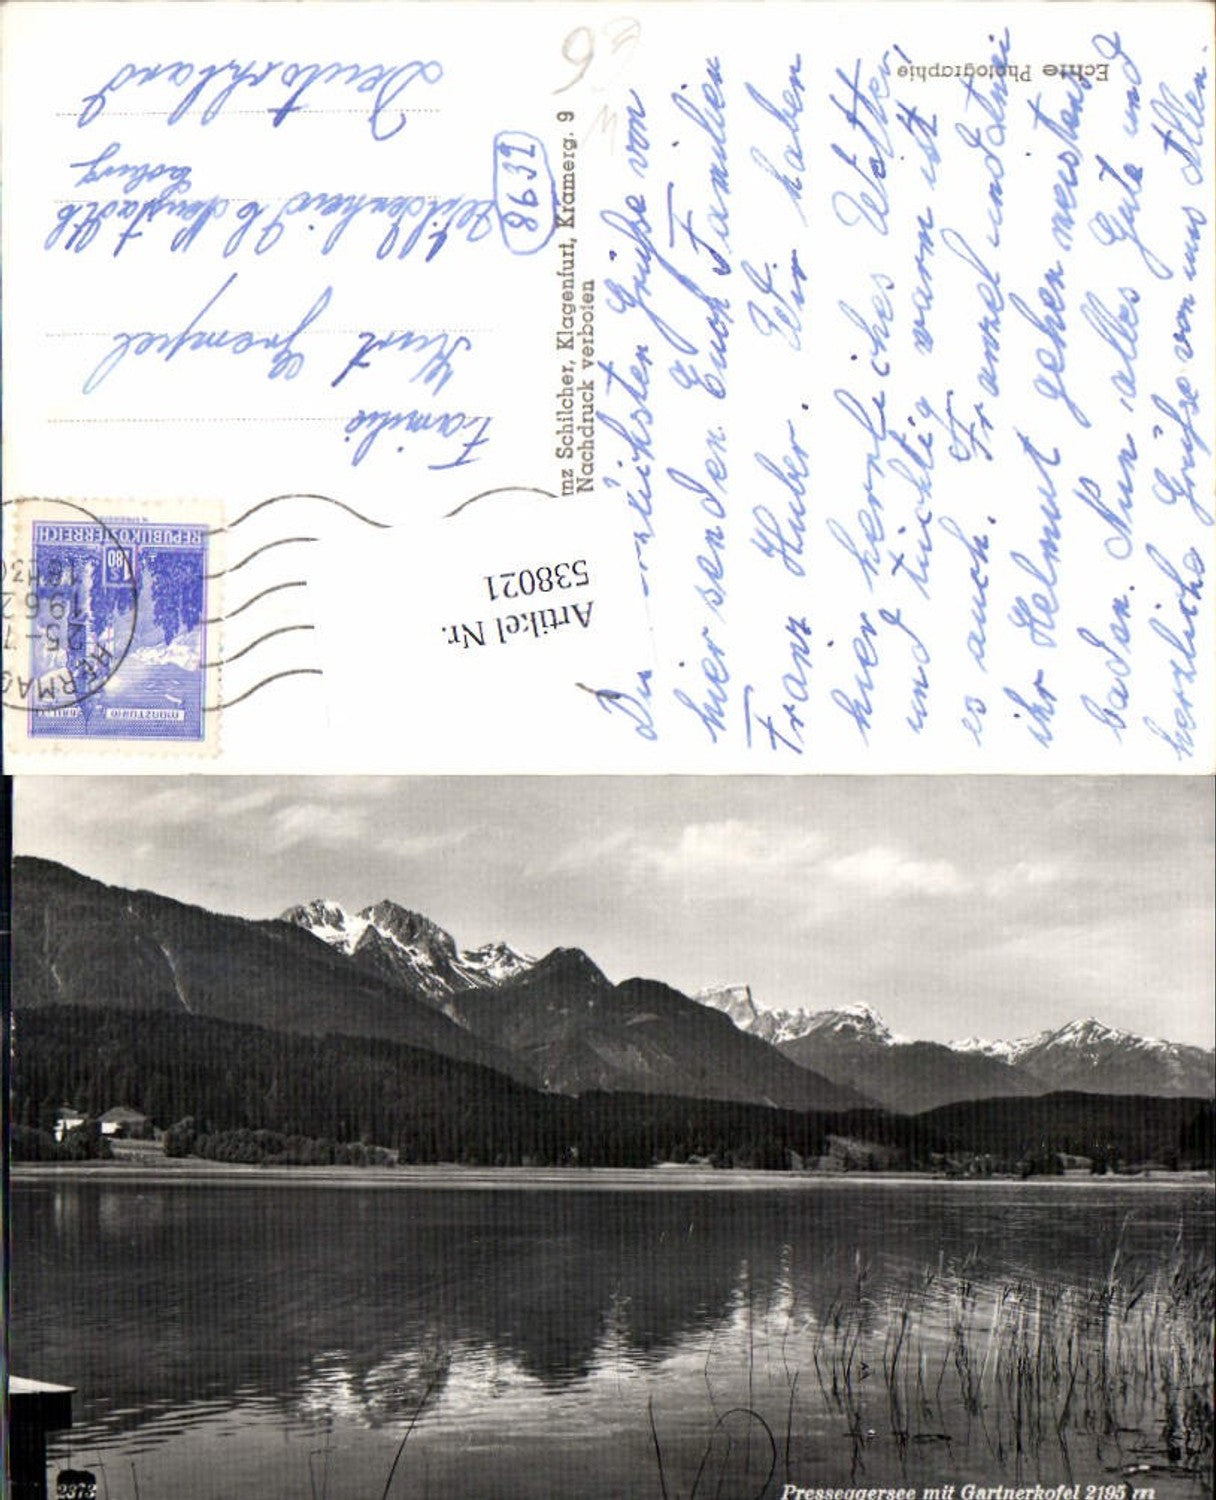 Echte Photographie
Die herzlichsten Grüße von
hier senden Euch Familien
Franz Huber. Wir haben
hier herrliches Wetter
und tüchtig warm ist
es auch. Franzel und
ihr Helmut gehen meistens
baden. Nun alles Gute und
herzliche Grüße von uns Allen.
nz Schilcher, Klagenfurt, Kramerg. 9
Nachdruck verboten
Artikel Nr.
538021
REPUBLIK ÖSTERREICH
1.80
S
MÜNZTURM
HERMAG
25-7
1962
Familie
Kurt
8632
b Neustadt b
Coburg
Deutschland
2373
Presseggersee mit Gartnerkofel 2195 m